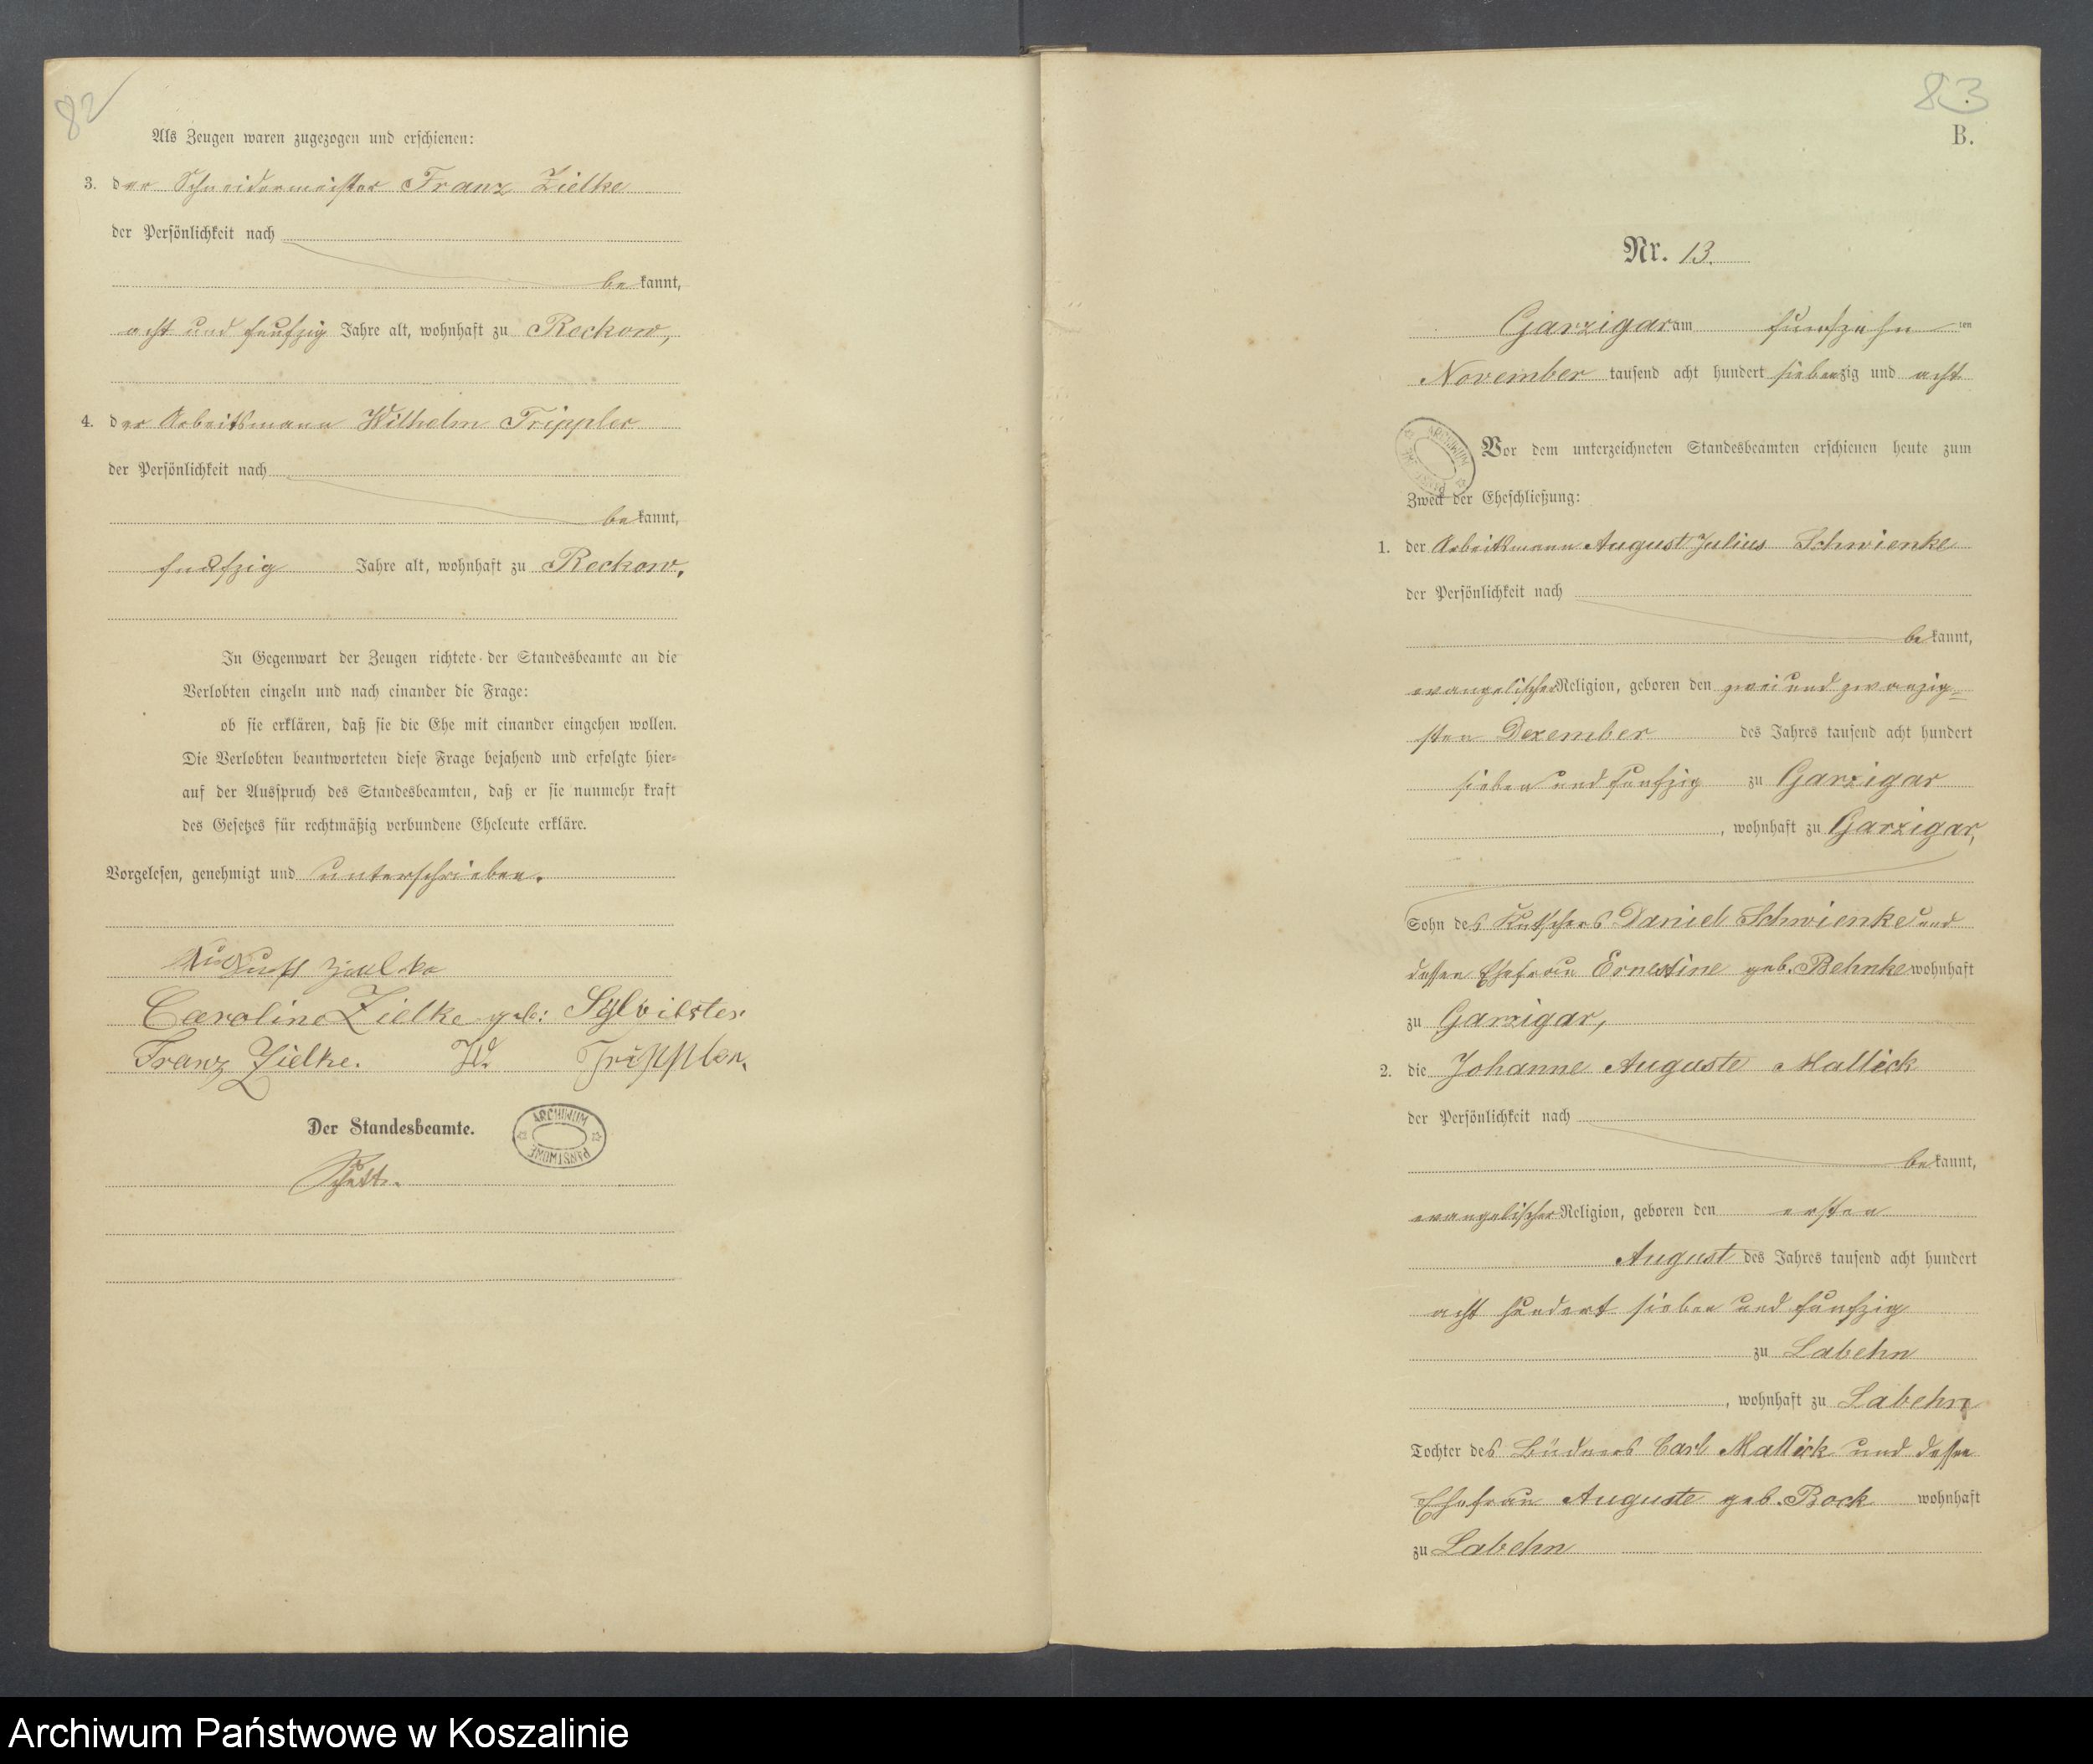 82
Als Zeugen waren zugezogen und erschienen:
3. der Schneidermeister Franz Zielke
der Persönlichkeit nach
bekannt,
acht und funfzig Jahre alt, wohnhaft zu Reckow,
4. der Arbeitsmann Wilhelm Trippler
der Persönlichkeit nach
bekannt,
funfzig Jahre alt, wohnhaft zu Reckow.
In Gegenwart der Zeugen richtete der Standesbeamte an die
Verlobten einzeln und nach einander die Frage:
ob sie erklären, daß sie die Ehe mit einander eingehen wollen.
Die Verlobten beantworteten diese Frage bejahend und erfolgte hier-
auf der Ausspruch des Standesbeamten, daß er sie nunmehr kraft
des Gesetzes für rechtmäßig verbundene Eheleute erkläre.
Vorgelesen, genehmigt und unterschrieben.
August Zielke
Caroline Zielke geb: Sylvilster
Franz Zielke. W. Trippler.
Der Standesbeamte.
ARCHIWUM PAŃSTWOWE
83
B.
Nr. 13.
Garzigar am funfzehn ten
November tausend acht hundert siebenzig und acht
ARCHIWUM PAŃSTWOWE
Vor dem unterzeichneten Standesbeamten erschienen heute zum
Zweck der Eheschließung:
1. der Arbeitsmann August Julius Schwienke
der Persönlichkeit nach
bekannt,
evangelischer Religion, geboren den zwei und zwanzig=
sten Dezember des Jahres tausend acht hundert
sieben und funfzig zu Garzigar
, wohnhaft zu Garzigar,
Sohn des Kutschers Daniel Schwienke und
dessen Ehefrau Ernestine geb. Behnke wohnhaft
zu Garzigar,
2. die Johanne Auguste Mallick
der Persönlichkeit nach
bekannt,
evangelischer Religion, geboren den ersten
August des Jahres tausend acht hundert
acht hundert sieben und funfzig
zu Labehn
, wohnhaft zu Labehn
Tochter des Büdners Carl Mallick und dessen
Ehefrau Auguste geb. Bock wohnhaft
zu Labehn
Archiwum Państwowe w Koszalinie